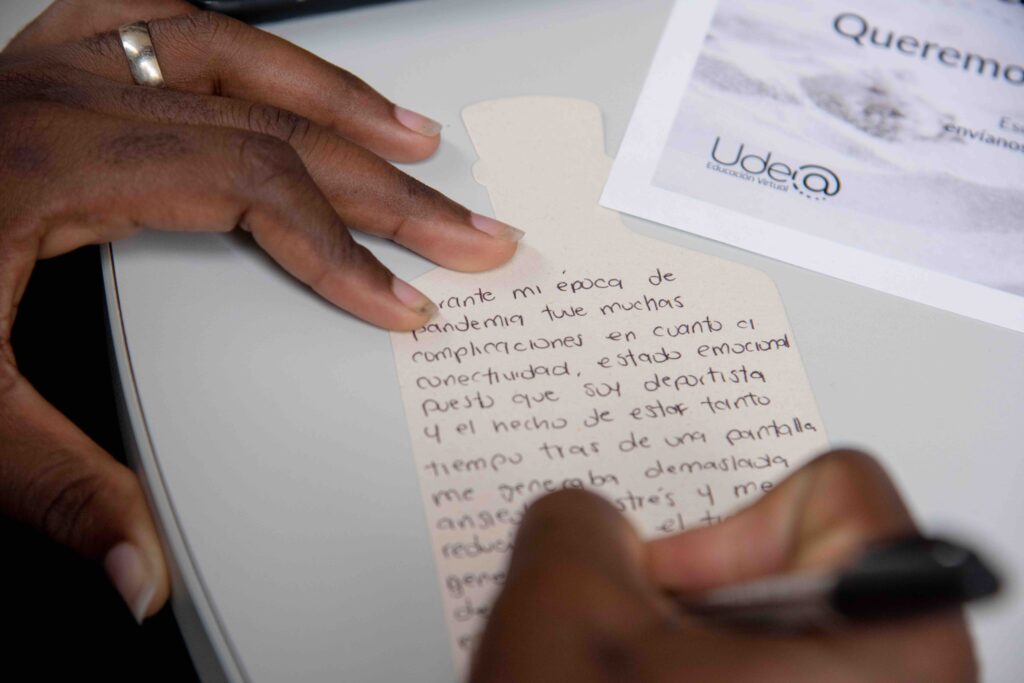 Queremo
Es
envíanos
Ude@
Educación Virtual
rante mi época de
pandemia tuve muchas
complicaciones en cuanto a
conectividad, estado emocional
puesto que soy deportista
y el hecho de estar tanto
tiempo tras de una pantalla
me generaba demasiada
estrés y me
reduc el t
gene
de